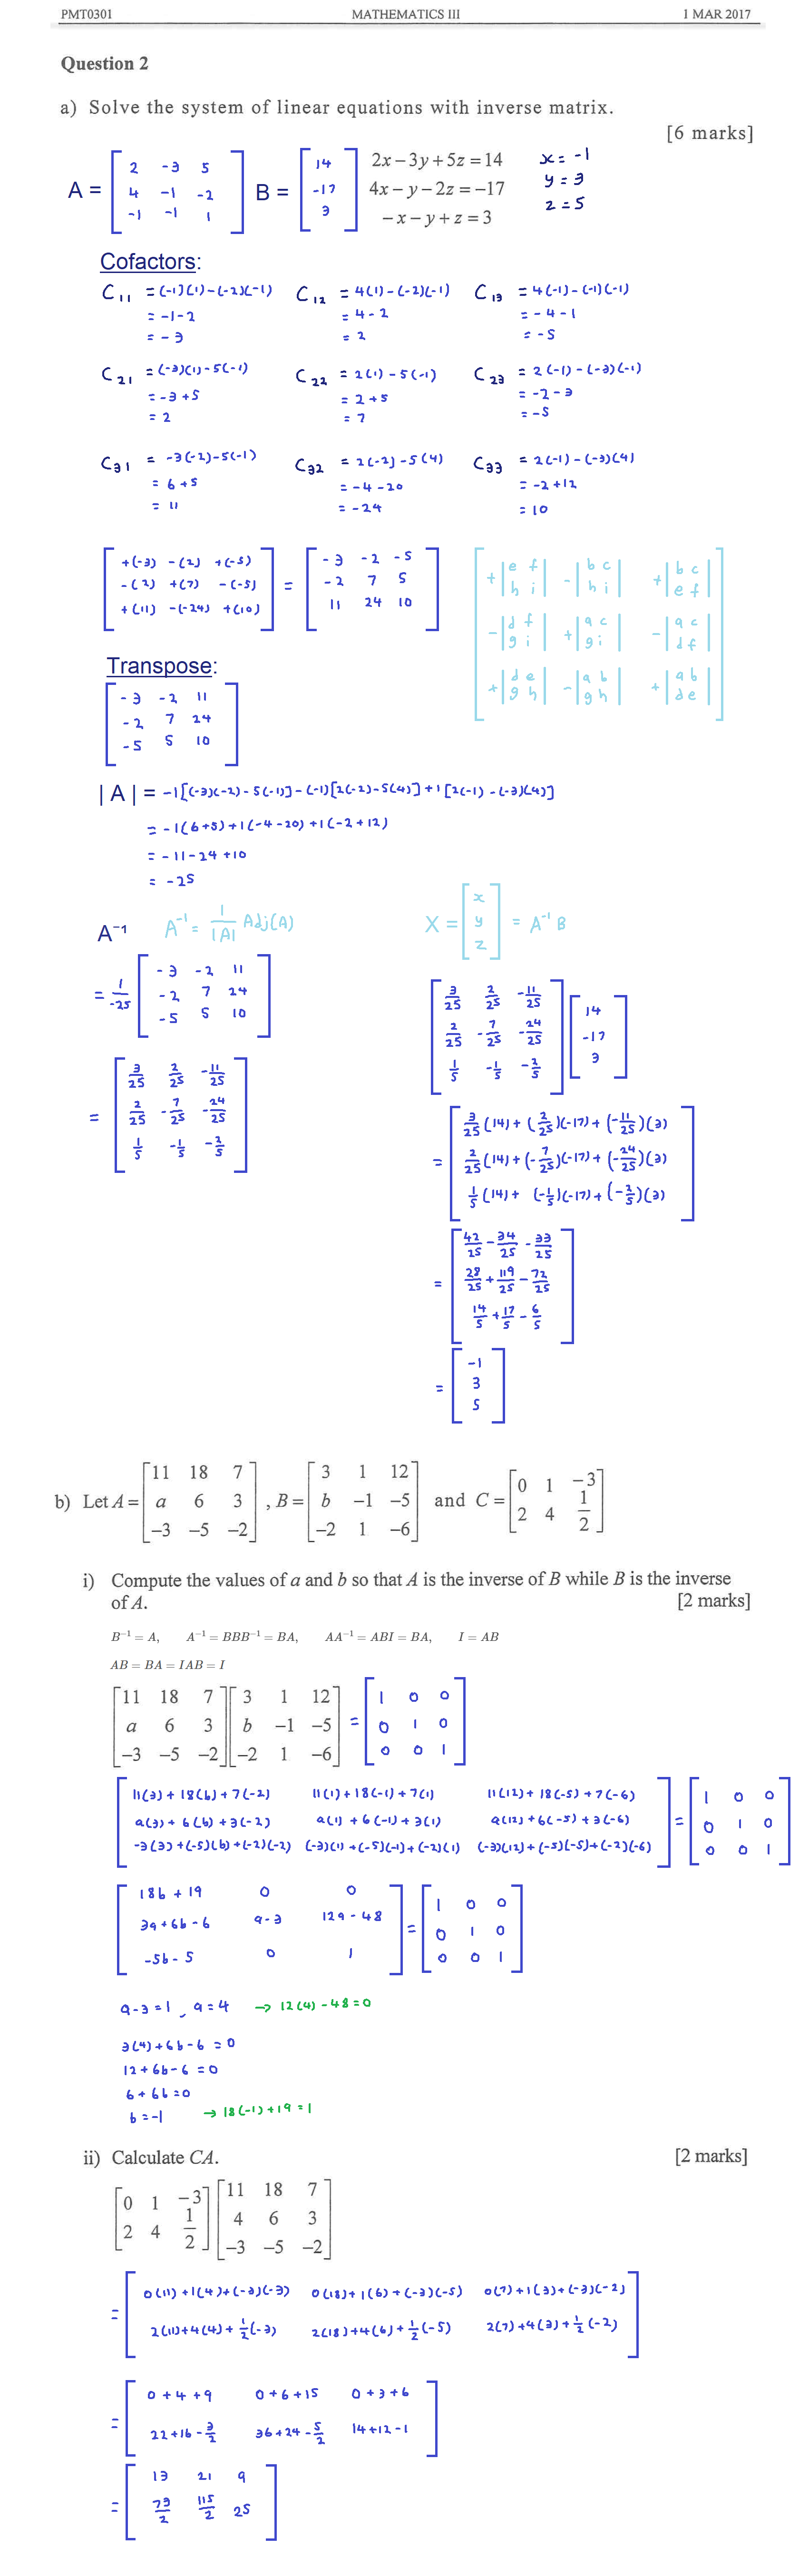 PMT0301 MATHEMATICS III 1 MAR 2017
Question 2
a) Solve the system of linear equations with inverse matrix.
[6 marks]
A = [2 -3 5; 4 -1 -2; -1 -1 1] B = [14; -17; 3] 2x-3y+5z=14 x = -1
4x-y-2z=-17 y = 3
-x-y+z=3 z = 5
Cofactors:
C11 = (-1)(1)-(-2)(-1) C12 = 4(1)-(-2)(-1) C13 = 4(-1)-(-1)(-1)
= -1-2 = 4-2 = -4-1
= -3 = 2 = -5
C21 = (-3)(1)-5(-1) C22 = 2(1)-5(-1) C23 = 2(-1)-(-3)(-1)
= -3+5 = 2+5 = -2-3
= 2 = 7 = -5
C31 = -3(-2)-5(-1) C32 = 2(-2)-5(4) C33 = 2(-1)-(-3)(4)
= 6+5 = -4-20 = -2+12
= 11 = -24 = 10
+(-3) -(2) +(-5) -3 -2 -5 +|e f; h i| -|b c; h i| +|b c; e f|
-(2) +(7) -(-5) = -2 7 5 -|d f; g i| +|a c; g i| -|a c; d f|
+(11) -(-24) +(10) 11 24 10 +|d e; g h| -|a b; g h| +|a b; d e|
Transpose:
-3 -2 11
-2 7 24
-5 5 10
|A| = -1[(-3)(-2)-5(-1)]-(-1)[2(-2)-5(4)]+1[2(-1)-(-3)(4)]
= -1(6+5)+1(-4-20)+1(-2+12)
= -11-24+10
= -25
A⁻¹ A⁻¹ = 1/|A| Adj(A) X = [x; y; z] = A⁻¹B
= 1/-25 [-3 -2 11; -2 7 24; -5 5 10]
= [3/25 2/25 -11/25; 2/25 -7/25 -24/25; 1/5 -1/5 -2/5]
[3/25 2/25 -11/25; 2/25 -7/25 -24/25; 1/5 -1/5 -2/5] [14; -17; 3]
= 3/25(14)+(2/25)(-17)+(-11/25)(3)
2/25(14)+(-7/25)(-17)+(-24/25)(3)
1/5(14)+(-1/5)(-17)+(-2/5)(3)
= 42/25-34/25-33/25
28/25+119/25-72/25
14/5+17/5-6/5
= [-1; 3; 5]
b) Let A = [11 18 7; a 6 3; -3 -5 -2], B = [3 1 12; b -1 -5; -2 1 -6] and C = [0 1 -3; 2 4 1/2]
i) Compute the values of a and b so that A is the inverse of B while B is the inverse
of A. [2 marks]
B⁻¹ = A, A⁻¹ = BBB⁻¹ = BA, AA⁻¹ = ABI = BA, I = AB
AB = BA = IAB = I
[11 18 7; a 6 3; -3 -5 -2][3 1 12; b -1 -5; -2 1 -6] = [1 0 0; 0 1 0; 0 0 1]
11(3)+18(b)+7(-2) 11(1)+18(-1)+7(1) 11(12)+18(-5)+7(-6) 1 0 0
a(3)+6(b)+3(-2) a(1)+6(-1)+3(1) a(12)+6(-5)+3(-6) = 0 1 0
-3(3)+(-5)(b)+(-2)(-2) (-3)(1)+(-5)(-1)+(-2)(1) (-3)(12)+(-5)(-5)+(-2)(-6) 0 0 1
18b+19 0 0 1 0 0
3a+6b-6 a-3 12a-48 = 0 1 0
-5b-5 0 1 0 0 1
a-3=1, a=4 → 12(4)-48=0
3(4)+6b-6=0
12+6b-6=0
6+6b=0
b=-1 → 18(-1)+19=1
ii) Calculate CA. [2 marks]
[0 1 -3; 2 4 1/2][11 18 7; 4 6 3; -3 -5 -2]
= 0(11)+1(4)+(-3)(-3) 0(18)+1(6)+(-3)(-5) 0(7)+1(3)+(-3)(-2)
2(11)+4(4)+1/2(-3) 2(18)+4(6)+1/2(-5) 2(7)+4(3)+1/2(-2)
= 0+4+9 0+6+15 0+3+6
22+16-3/2 36+24-5/2 14+12-1
= 13 21 9
73/2 115/2 25